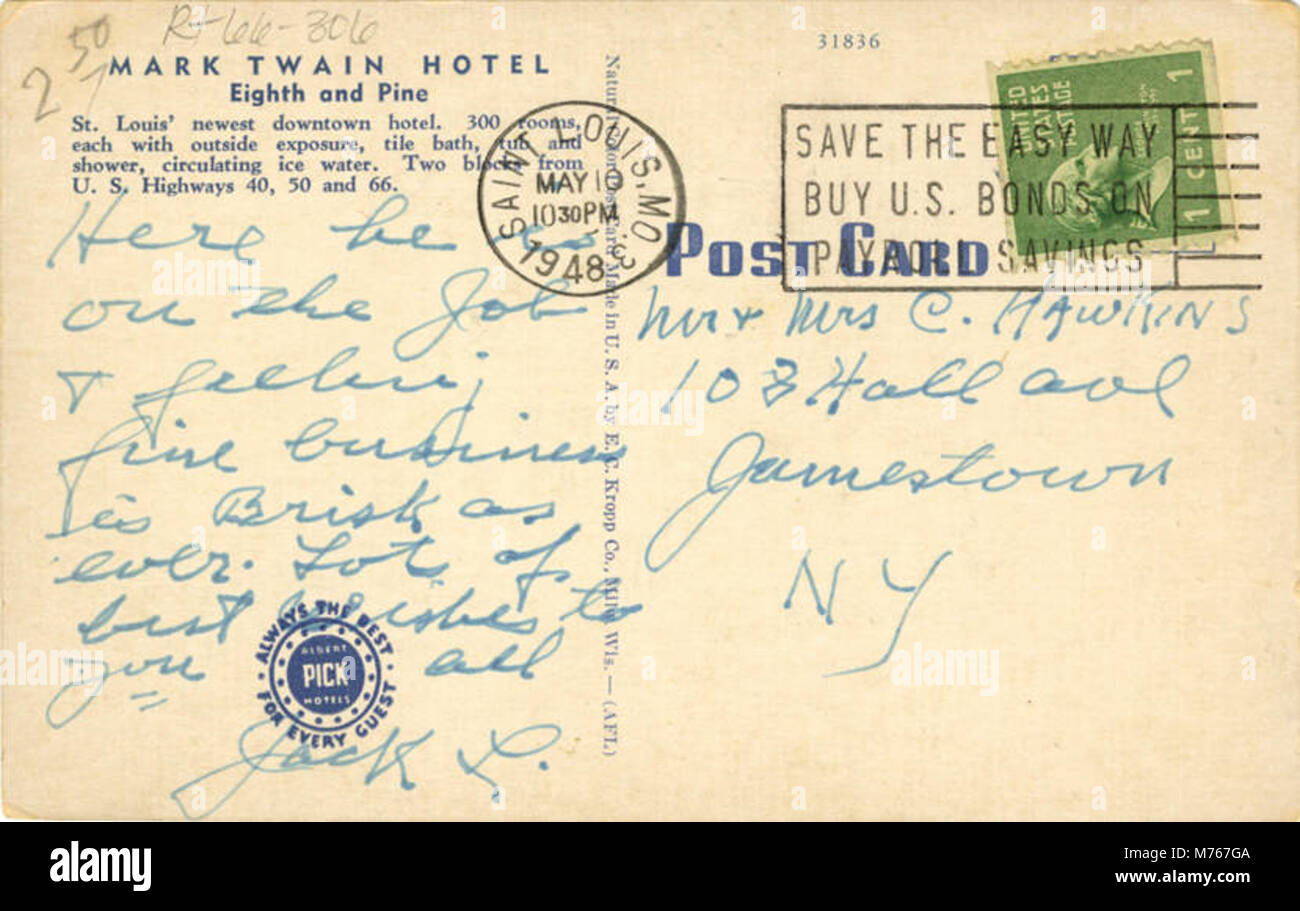 Rt66-306
2 50
MARK TWAIN HOTEL
Eighth and Pine
St. Louis' newest downtown hotel. 300 rooms,
each with outside exposure, tile bath, tub and
shower, circulating ice water. Two blocks from
U. S. Highways 40, 50 and 66.
Here be
on the Job
&
fine business
is Brisk as
ever. Lots of
best wishes to
you all
Jack L.
ALWAYS THE BEST
ALBERT
PICK
HOTELS
FOR EVERY GUEST
Made in U. S. A. by E. C. Kropp Co., Milw. Wis. — (AFL)
31836
SAINT LOUIS, MO
MAY 10
10 30 PM
1948
SAVE THE EASY WAY
BUY U.S. BONDS ON
PAYROLL SAVINGS
UNITED
STATES
POSTAGE
1 CENT 1
POST CARD
Mr & Mrs C. HAWKINS
103 Hall ave
Jamestown
NY
alamy
alamy
alamy
Image ID: M767GA
www.alamy.com